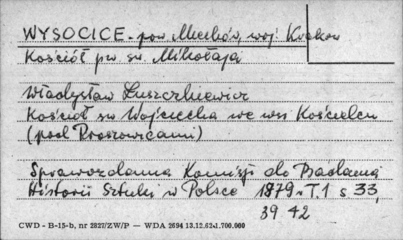 WYSOCICE - pow. Miechów, woj. Kraków
Kościół pw. św. Mikołaja
Władysław Łuszczkiewicz
Kościół św. Wojciecha we wsi Kościelcu
(pod Proszowicami)
Sprawozdania Komisji do Badania
Historii Sztuki w Polsce 1879 T.1 s. 33,
39 42
CWD - B-15-b, nr 2827/ZW/P — WDA 2694 13.12.62 1.700.000